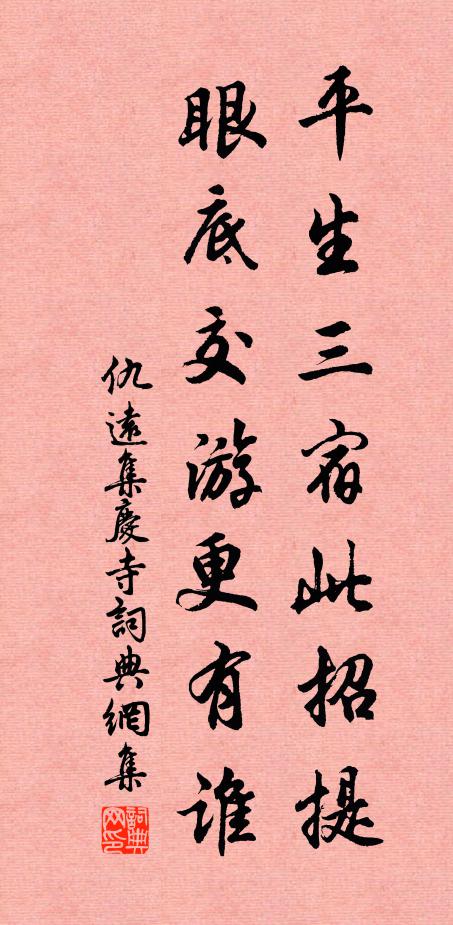 平生三宿此招提
眼底交游更有谁
仇遠集慶寺詞典網集
詞典网印